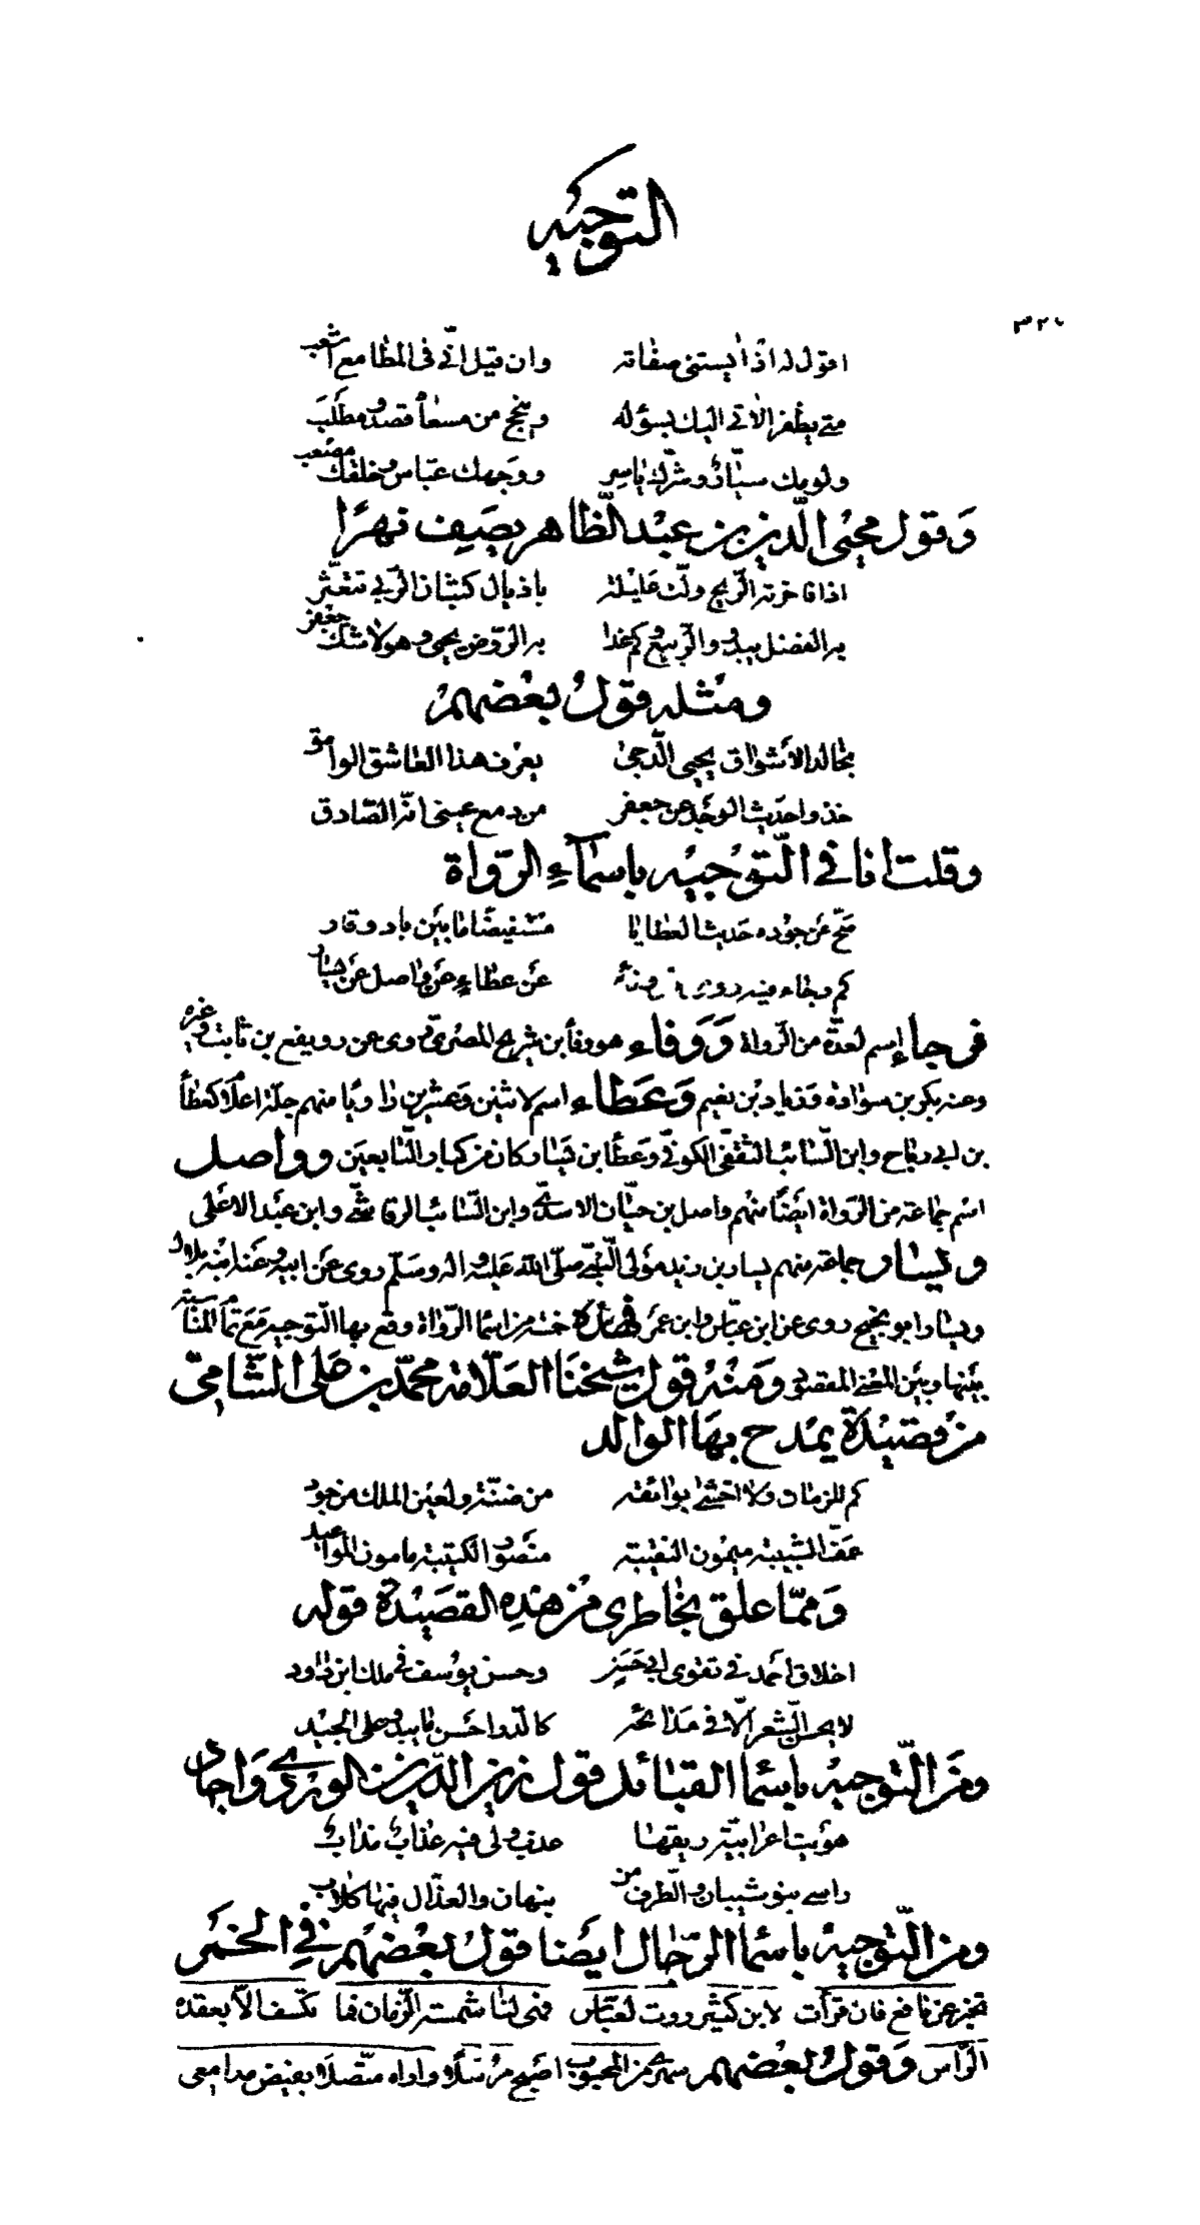 التوجيه
٣٢٧
اقول له اذا ايستني صفاته وان قيل انّي في المطامع اشعب
متى يظفر الآتي اليك بسؤله وينجح من مسعاه قصد ومطلب
ولومك سيّار وشرّك ياسر ووجهك عبّاس وخلقك مصعب
وَقول محيي الدّين بن عبْد الظّاهر يصَف نهرًا
اذا فاخرته الرّيح ولّت عليلة باذيال كثبان الرّبى تتعثّر
به الفضل يبدو والرّبيع وكم غدا به الرّوض يحيى وهو لا شك جعفر
ومثله قول بعْضهمْ
بخالد الاشواق يحيى الدّجى يعرف هذا العاشق الوامق
خذوا حديث الوجد عن جعفر من دمع عيني انّه الصّادق
وقلت انا في التّوجيه باسمآء الرّواة
صحّ عَن جوْده حَديث العطايا مسْتفيضًا ما بيَن باد وقار
كم رجاء فيه روى عَن عطاءٍ عَن واصل عَن يسار
فرجاء إسم لعدّة من الرّواة وَوَفاء هو وفا بن شريح المصْريّ روى عن رويفع بن ثابت وغيره
وعنه بكر بن سوادة وزياد بن نعيم وَعَطاء اسم لاثنين وَعشرين راويًا منهم جلّة اعلام كعطا
بن ابي رباح وابن السّائب الثقفي الكوفي وَعَطا بن يَسار وكان من كبار التّابعَين وواصل
اسْم جماعة من الرّواة ايضًا منهم واصل بن حيّان الاسدي وابن السّائب الرقاشي وابن عبْد الاعْلى
ويسار جماعة منهم يسار بن زيد موْلى النّبي صلّى الله عَليْه واله وسَلّم روى عَن ابيه وعَنه ابنه بلال
ويسار ابو نجيح روى عن ابن عبّاس وابن عمَر فهذه خمْسة من اسْما الرّواة وقع بها التّوجيه مَعَ تمام المناسبة
بيْنها وبيَن المعْنى المقصود وَمنْه قول شيخنَا العَلّامة محمّد بن عَلي الشّامي
من قصيْدة يمْدح بهَا الوالد
كم للزمان ولا اخشى بوائقه من ضنّة ولعيْن الملك من جود
عفّ الشبيبة ميْمُون النقيْبة منصور الكتيبة مامون المواعيد
وَممّا علق بخاطري من هذه القصَيْدة قوله
اخلاق احمد في تقوى ابي حسن وحسن يوْسف في ملك ابن داود
لا يحسن الشّعر الّا في مدائحه كالدّر احْسن ما يبدو على الجيْد
ومن التّوجيْه باسْما القبائل قول زين الدّين بن الورْدي وَاجاد
هوَيت اعرابيّة ريقها عذب ولي فيه عذاب مذاب
راسي بنو شيبان والطّرف من نبهان والعذّال فيها كلاب
ومن التّوجيْه باسْما الرّجال ايضا قول بعْضهمْ في الخمْر
تخبر عن نافع فان قرأت لابن كثير روت لعبّاس فهى لنا شمسة الزّمان فما تكسف الّا بعقده
الرّاس وَقول بعْضهمْ سهري من المحبوب اصْبح مرْسلا واراه متّصلا بفيْض مدامعى